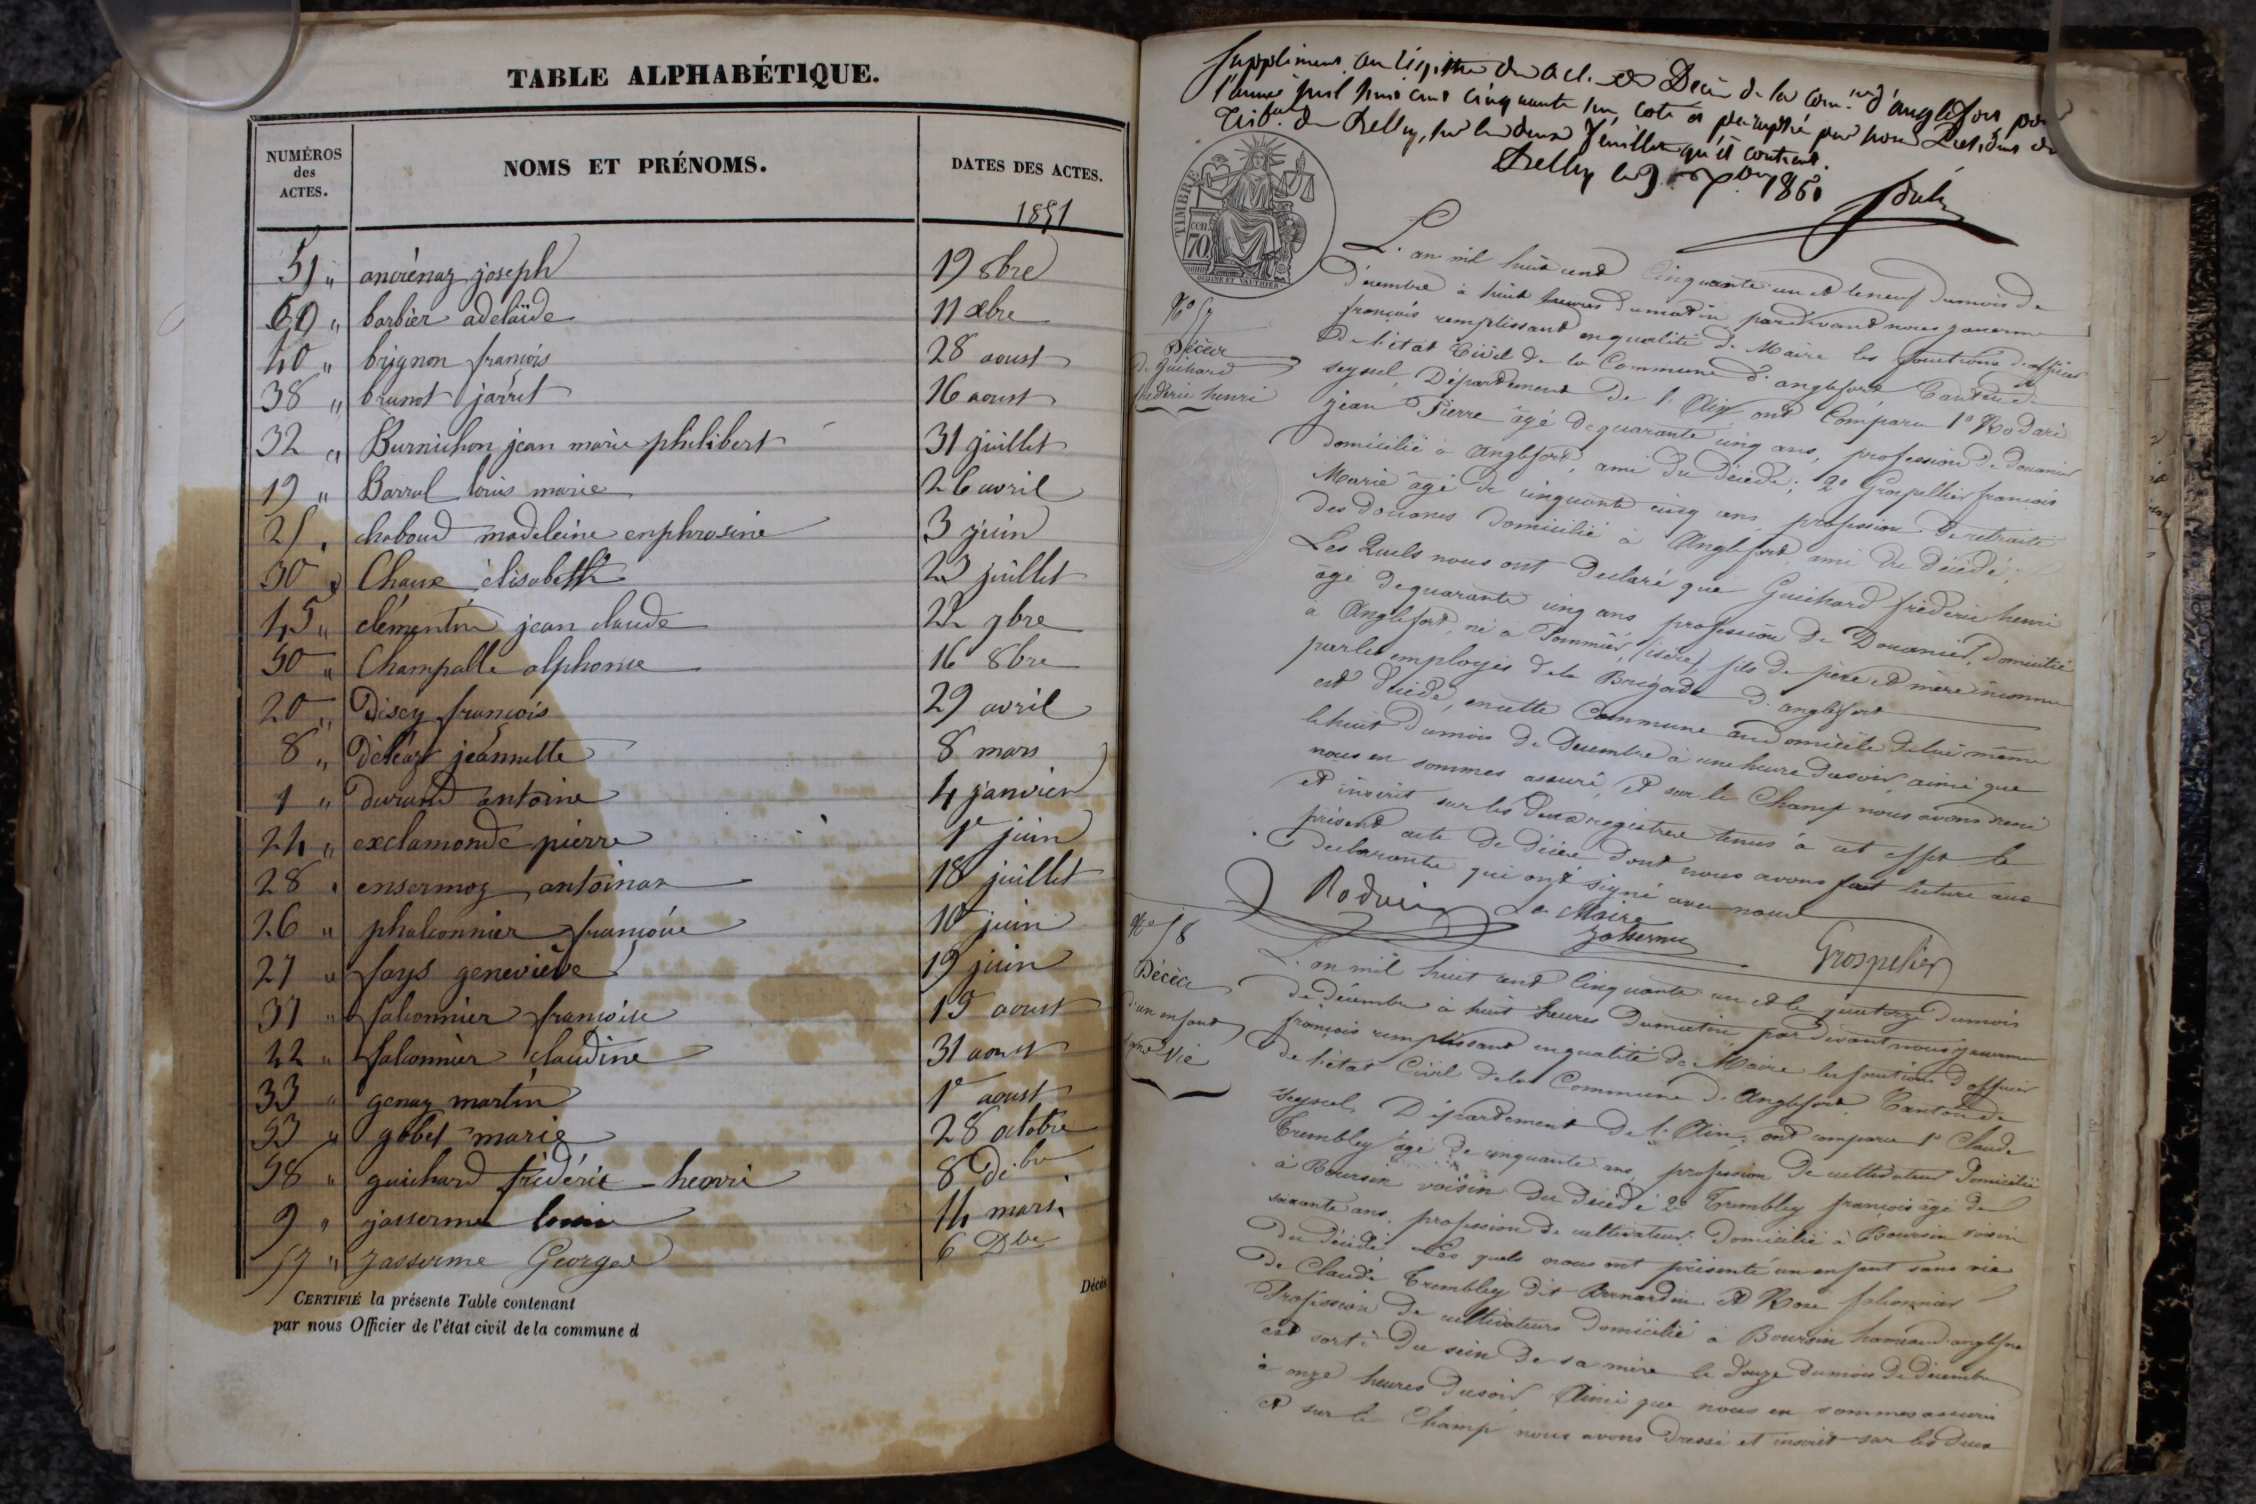 TABLE ALPHABÉTIQUE.
NUMÉROS des ACTES.
NOMS ET PRÉNOMS.
DATES DES ACTES.
1851
51 " andrénaz joseph 19 8bre
60 " barbier adelaïde 11 xbre
40 " brignon françois 28 aoust
38 " brunot jarret 16 aoust
32 " Burnichon jean marie philibert 31 juillet
19 " Barral louis marie 26 avril
25 " chaboud madeleine euphrosine 3 juin
30 " Chaux élisabeth 23 juillet
45 " clémentin jean claude 22 7bre
50 " Champalle alphonse 16 8bre
20 " Discy françois 29 avril
8 " Déléaz jeannette 8 mars
1 " durand antoine 4 janvier
24 " exclamonde pierre 1e juin
28 " ensermoz antoinaz 18 juillet
26 " phalconnier françoise 10 juin
27 " fays geneviève 19 juin
37 " falconnier françoise 15 aoust
42 " falconnier claudine 31 aoust
33 " genaz martin 1e aoust
53 " gobet marie 28 octobre
58 " guichard frédéric henri 8 Dibre
9 " jasserme louise 14 mars
57 " Jasserme George 6 Dbre
Décès
CERTIFIÉ la présente Table contenant
par nous Officier de l'état civil de la commune d
Supplément au registre des act. de Décès de la comne d'anglefort pour
l'année mil huit cent cinquante un, coté et paraphé par nous Président du
Tribal de Belley, sur les deux feuillets qu'il contient.
Belley le 9 Xbre 185
TIMBRE
70 cen
OUDINÉ ET VAUTHIER
No 57
Décès
de Guichard
frédéric henri
L'an mil huit cent cinquante un et le neuf du mois de
décembre à huit heures du matin, pardevant nous jasserme
françois remplissant en qualité de Maire les fonctions d'officier
de l'état Civil de la Commune d'anglefort Canton de
seyssel, Département de l'Ain ont Comparu 1o Rodari
jean Pierre âgé de quarante cinq ans, profession de douanier
domicilié à Anglefort, ami du décédé; 2o Grospellier françois
Marie âgé de cinquante cinq ans profession de retraité
des douanes domicilié à Anglefort, ami du décédé;
Les Quels nous ont déclaré que Guichard frédéric henri
âgé de quarante cinq ans profession de Douanier, domicilié
à Anglefort, né à Pommier, (isère), fils de père et mère inconnu
par les employés de la Brigade d'anglefort
est décédé, en cette Commune au domicile de lui même
le huit du mois de Décembre à une heure du soir, ainsi que
nous en sommes assuré, et sur le Champ nous avons dressé
et inscrit sur les deux registres tenus à cet effet le
présent acte de décès dont nous avons fait lecture aux
déclarants qui ont signé avec nous
Rodari
Le Maire
Jasserme
Grospelier
No 58
Décès
d'un enfant
sans Vie
L'an mil huit cent cinquante un et le quatorze du mois
de décembre à huit heures du matin, pardevant nous jasserme
françois remplissant en qualité de Maire les fonctions d'officier
de l'état Civil de la Commune d'Anglefort, Canton de
seyssel, Département de l'Ain, ont comparu 1o Claude
Trembley âgé de cinquante ans, profession de cultivateur domicilié
à Boursin voisin du décédé 2o Trembley françois âgé de
soixante ans, profession de cultivateur, domicilié à Boursin voisin
du décédé Les quels nous ont présenté un enfant sans vie
de Claude Trembley dit Bernardin et Rose falconnier
Profession de cultivateurs domicilié à Boursin hameau d'anglefort
est sorti du sein de sa mère le douze du mois de décembre
à onze heures du soir Ainsi que nous en sommes assuré
et sur le Champ nous avons dressé et inscrit sur les deux